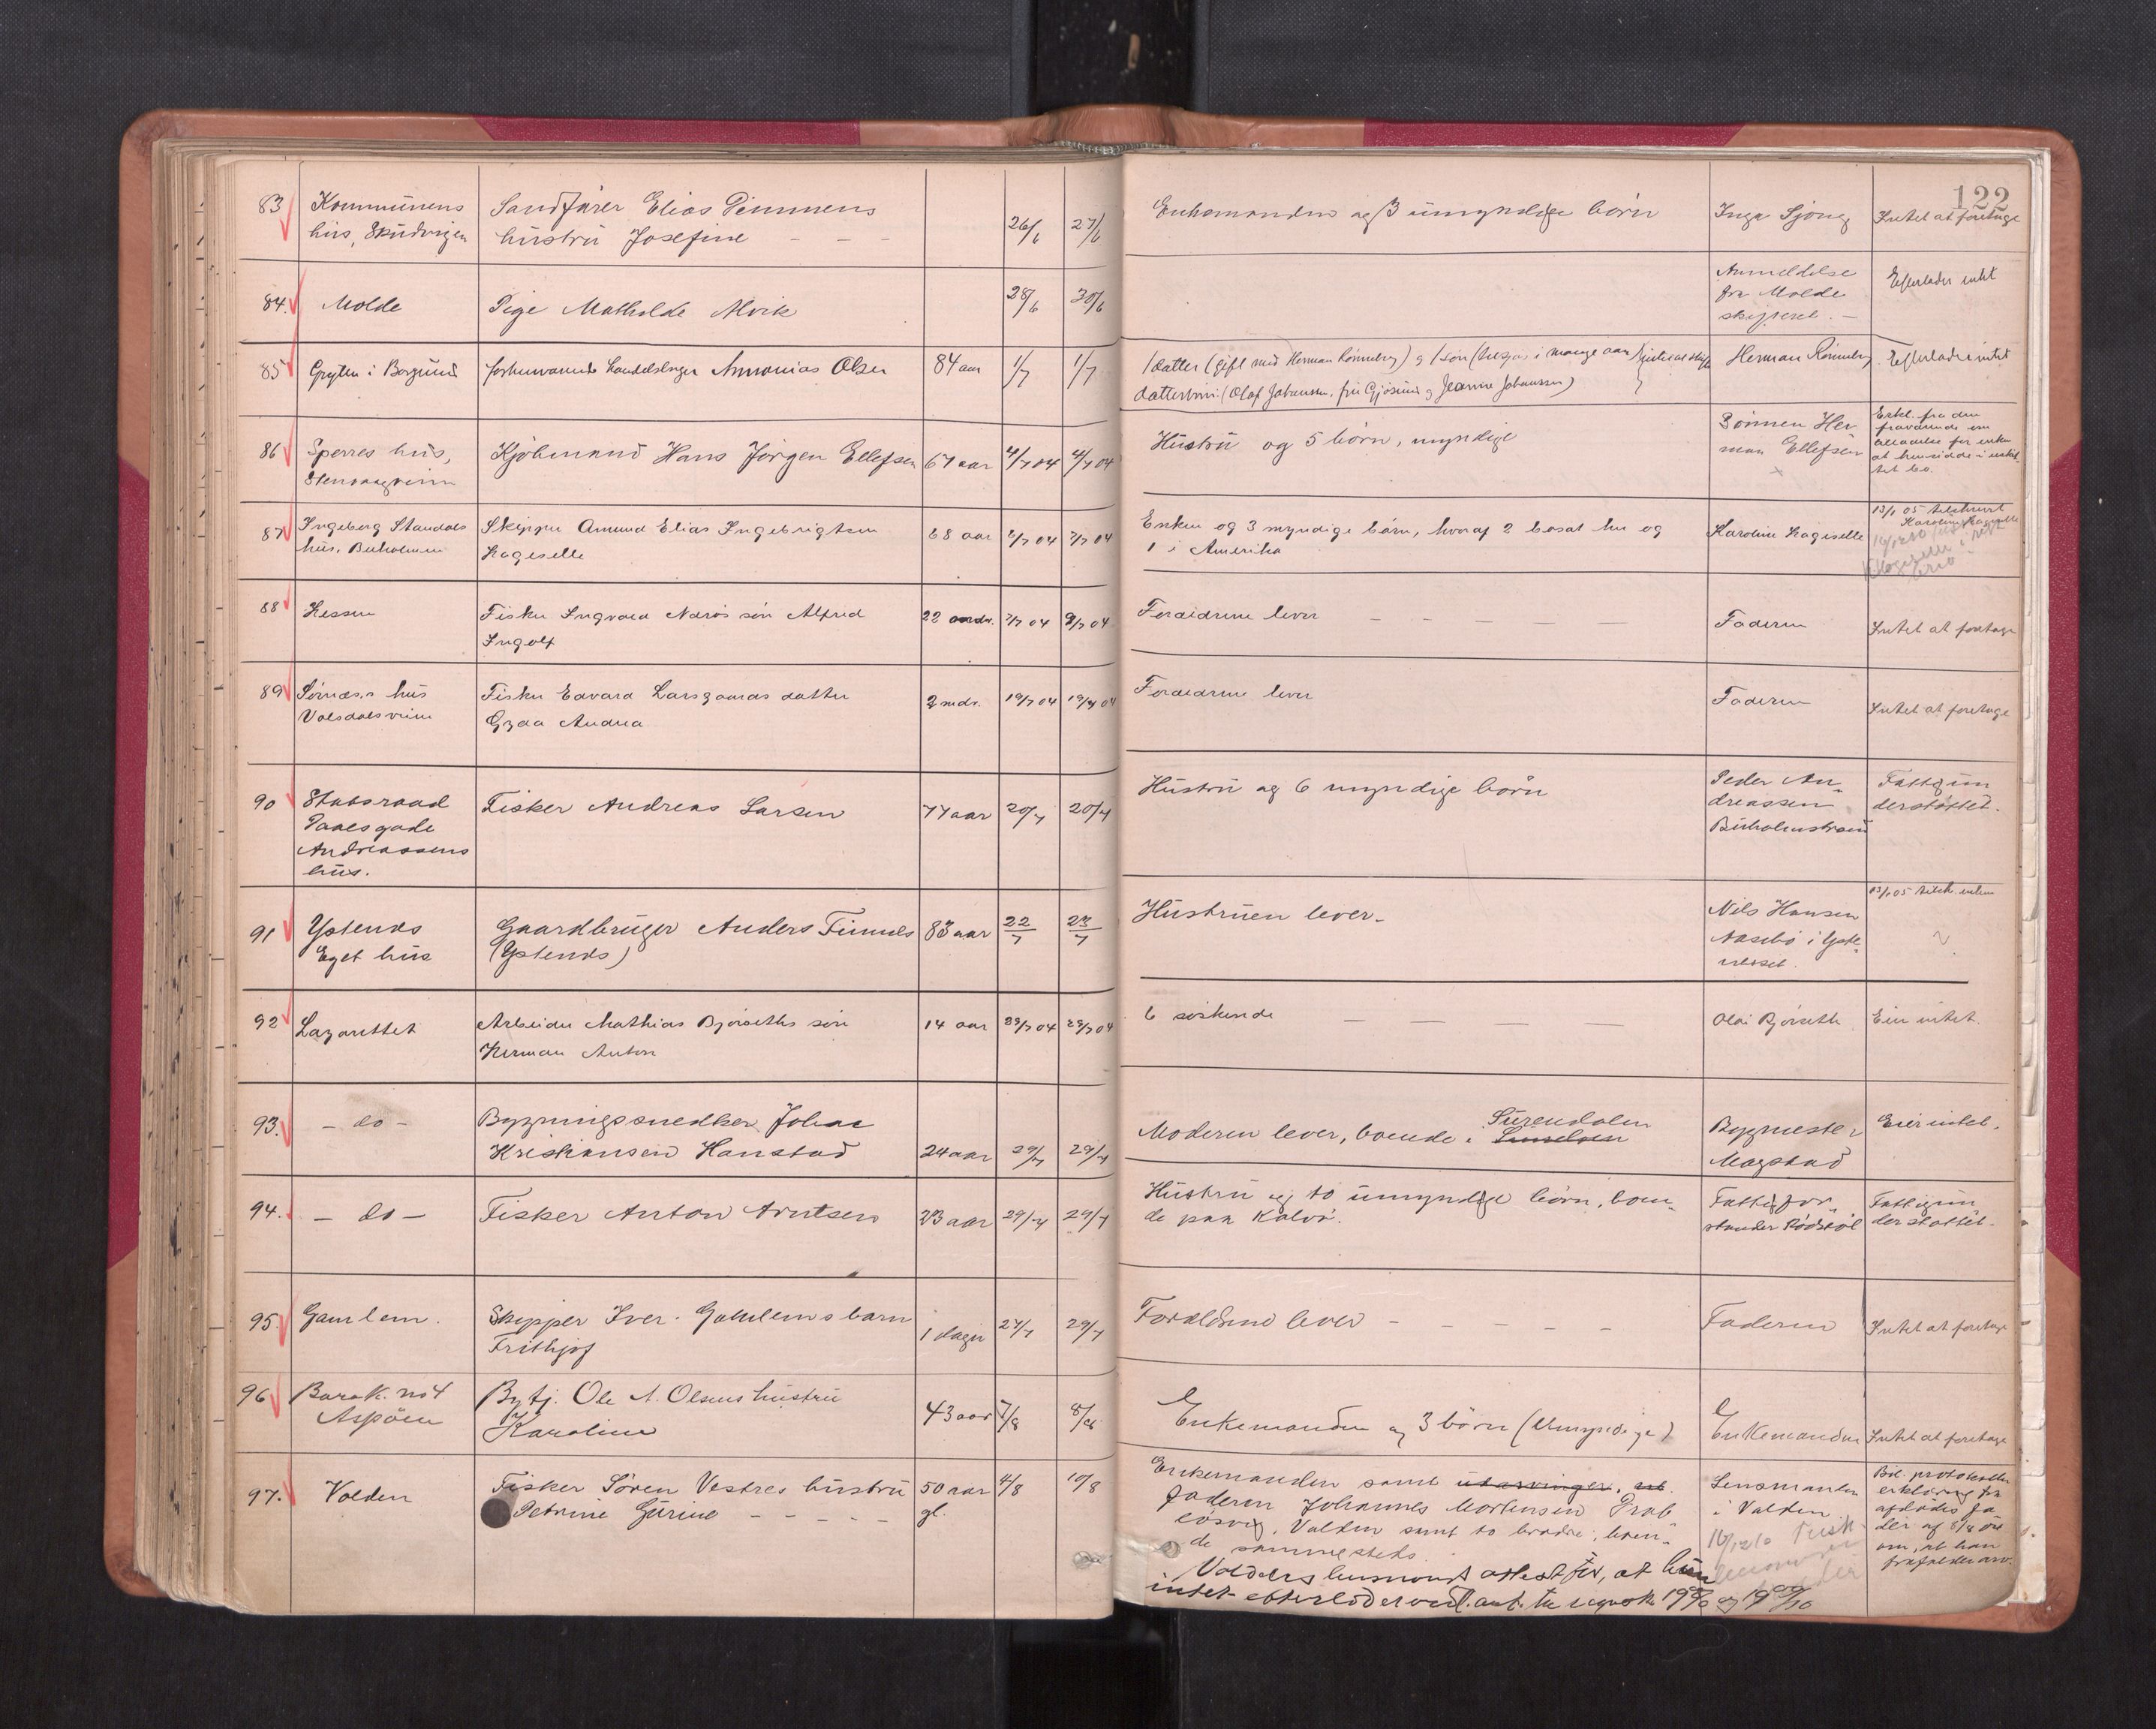 122
83 Kommunens hus, Skudvigen
Sandfører Elias Timmens hustru Josefine - - -
26/6 27/6
Enkemanden og 3 umyndige børn
Inga Sjong
Intet at foretage
84. Molde
Pige Mathilde Alvik
28/6 30/6
Anmeldelse fra Molde skifteret. -
Efterlader intet
85 Gryten i Borgund
forhenværende Handelsbruger Ammonias Olsen
84 aar 1/7 1/7
1 datter (gift med Herman Rønneberg) og 1 søn
i mange aar
datterbørn: (Olaf Johansen, fru Gjøsund og Jeanne Johansen)
Herman Rønneberg
Efterlader intet
86 Sperres hus,
Kjøbmand Hans Jørgen Ellefsen
67 aar 4/7 04 4/7 04
Hustru og 5 børn, myndige
Sønnen Herman Ellefsen
Erkl. fra den fraværende om
for enken
at hensidde i uskiftet bo.
87 Ingeborg Standals hus, Buholmen
Skipper Amund Elias Ingebrigtsen Hageselle
68 aar 7/7 04 7/7 04
Enken og 3 myndige børn, hvoraf 2 bosat her og
1 i Amerika
Karoline Hageselle
13/1 05 tilskrevet Karoline Hageselle
88 Hessen
Fisker Ingvald Nærøs søn Alfred Ingolf
22 7/7 04 9/7 04
Forældrene lever - - - - -
Faderen
Intet at foretage
89 hus Volsdalsveien
Fisker Edvard Larsgaards datter Gyda Andrea
2 mdr. 19/7 04 19/7 04
Forældrene lever
Faderen
Intet at foretage
90 Statsraad Daaesgade Andreassens hus.
Fisker Andreas Larsen
77 aar 20/7 20/7
Hustru og 6 myndige børn
Peder Andreassen Buholmstrand
Fattigunderstøttet.
91 Ystenes Eget hus
Gaardbruger Anders Finnes (Ystenes)
83 aar 22/7 23/7
Hustruen lever -
Nils Hansen Aasebø i
13/1 05 tilsk. enken
92 Lazarettet
Arbeider Mathias Bjørseths søn Herman Anton
14 aar 29/7 04 29/7 04
6 søskende - - - -
Olai Bjørseth
Eier intet.
93. - do -
Bygningssnedker Johan Kristiansen Hanstad
24 aar 29/7 29/7
Moderen lever, boende i Surendalen
Bygmester Magstad
Eier intet.
94. - do -
Fisker Anton Arntsen
23 aar 29/7 29/7
Hustru og to umyndige børn, boende paa Kalvø.
Fattigforstander Rødstøl
Fattigunderstøttet.
95. Gamlem.
Skipper Iver Gamlems barn Frithjof
1 dager 27/7 29/7
Forældrene lever - - - - -
Faderen
Intet at foretage
96 Barak. no 4 Aspøen
Bytj. Ole A. Olsens hustru Karoline
43 aar 7/8 8/8
Enkemanden og 3 børn (Umyndige)
Enkemanden
Intet at foretage
97. Volden
Fisker Søren Vestres hustru Petrine Gurine - - - - -
50 aar gl. 4/8 10/8
Enkemanden samt utarvinger,
faderen Johannes Mortensen
Volden samt to brødre, boende sammesteds.
Lensmanden i Volden
Bil. protokoller erklæring fra afdødes fader af
om, at han frafalder arv.
Voldens lensmand attesterer, at hun
intet efterlod